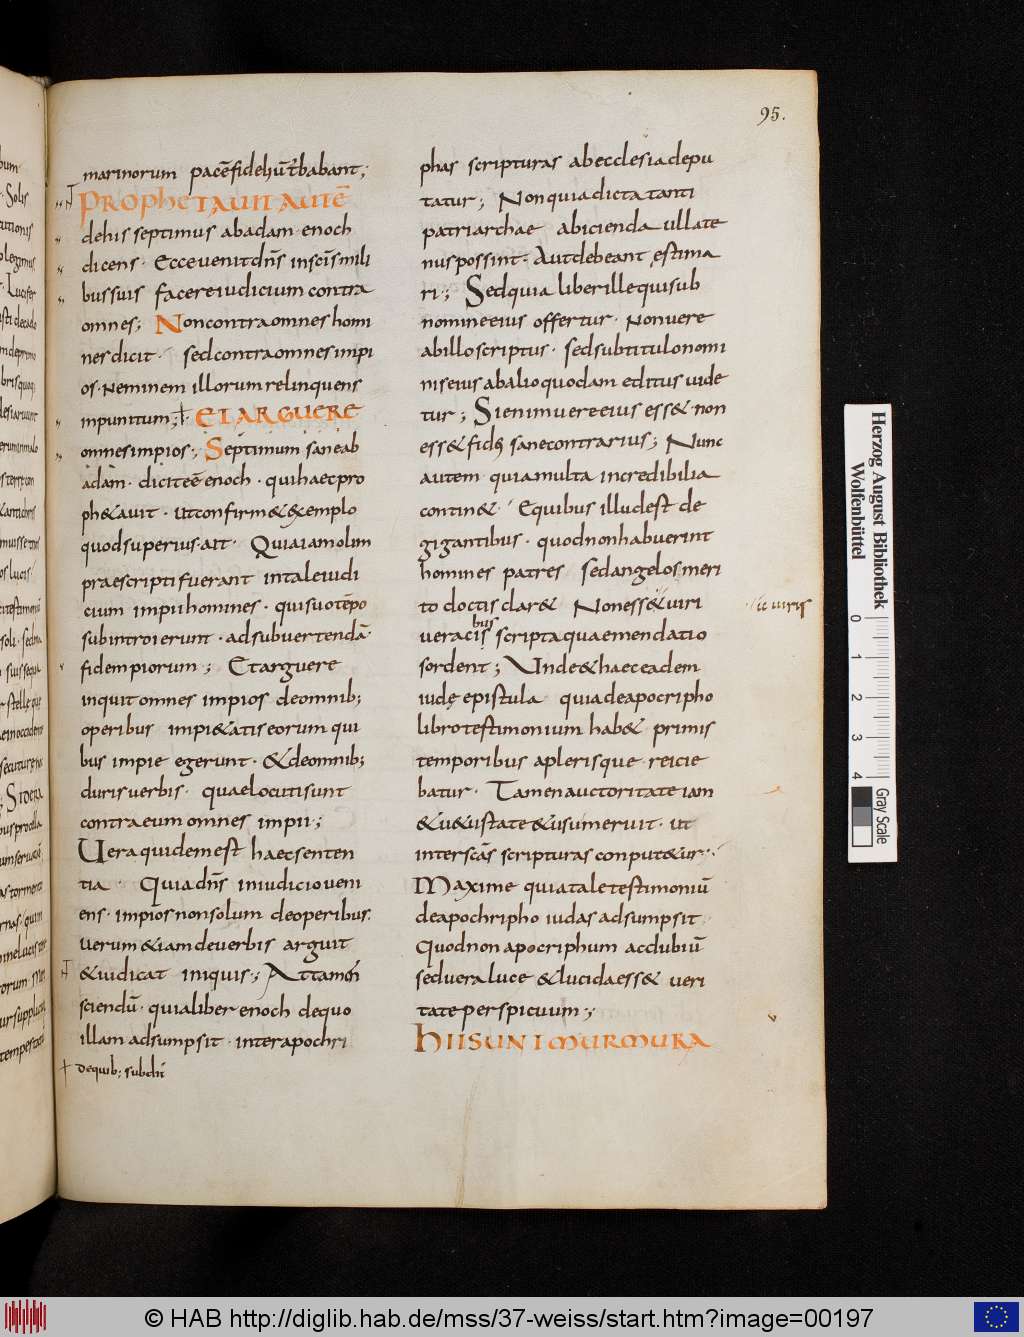 95.
marinorum pacē fidelium turbabant;
PROPHETAUIT AUTĒ
de his septimus ab adam enoch
dicens · Ecce uenit dn̄s in scīs mili
bus suis facere iudicium contra
omnes; Non contra omnes homi
nes dicit · sed contra omnes impi
os · Neminem illorum relinquens
inpunitum; ET ARGUERE
omnes impios; Septimum sane ab
adam · dicit eē enoch · qui haec pro
ph&auit · ut confirm& exemplo
quod superius ait · Quia iam olim
praescripti fuerant in tale iudi
cium impii homines · qui suo tēpo
sub introierunt · ad subuertendā
fidem piorum; Et arguere
inquit omnes impios de omnib;
operibus impi&atis eorum qui
bus impie egerunt · & de omnib;
duris uerbis · quae locuti sunt
contra eum omnes impii;
Uera quidem est haec senten
tia · Quia dn̄s in iudicio ueni
ens · impios non solum de operibus
uerum &iam de uerbis arguit
& iudicat iniquis; Attamen
sciendū · quia liber enoch de quo
illam adsumpsit · inter apochri
de quib; subdit
phas scripturas ab ecclesia depu
tatur; Non quia dicta tanti
patriarchae abicienda ullate
nus possint · Aut debeant ęstima
ri; Sed quia liber ille qui sub
nomine eius offertur · Non uere
ab illo scriptus · sed sub titulo nomi
nis eius ab alio quodam editus uide
tur; Si enim uere eius ess& non
ess& fidei sane contrarius; Nunc
autem quia multa incredibilia
contin& · E quibus illud est de
gigantibus · quod non habuerint
homines patres sed angelos meri
to doctis clar& Non ess& uiri
ic uiris
bus
ueracis scripta qua emendatio
sordent; Unde & haec eadem
iudę epistula quia de apocripho
libro testimonium hab& primis
temporibus a plerisque reicie
batur · Tamen auctoritate iam
& u&ustate & usu meruit · ut
inter scās scripturas conput&ur ·
Maxime quia tale testimoniū
de apochripho iudas adsumpsit
Quod non apocriphum ac dubiū
sed uera luce & lucida ess& ueri
tate perspicuum;
HII SUNT MURMURA
Herzog August Bibliothek
Wolfenbüttel
0 1 2 3 4
Gray Scale
© HAB http://diglib.hab.de/mss/37-weiss/start.htm?image=00197